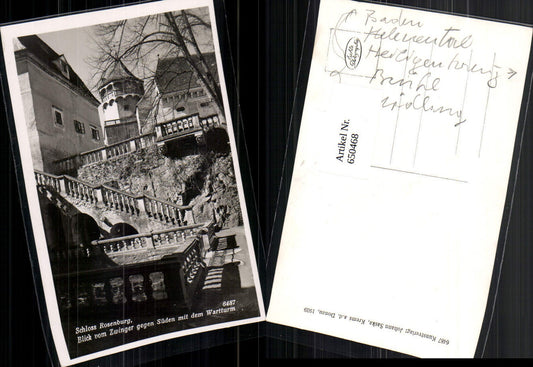 6487
Schloss Rosenburg,
Blick vom Zwinger gegen Süden mit dem Wartturm
Baden
Helenental
Heiligenkreuz
Brühl
Mödling
Artikel Nr.
650468
6487 Kunstverlag Johann Saska, Krems a.d. Donau, 1939